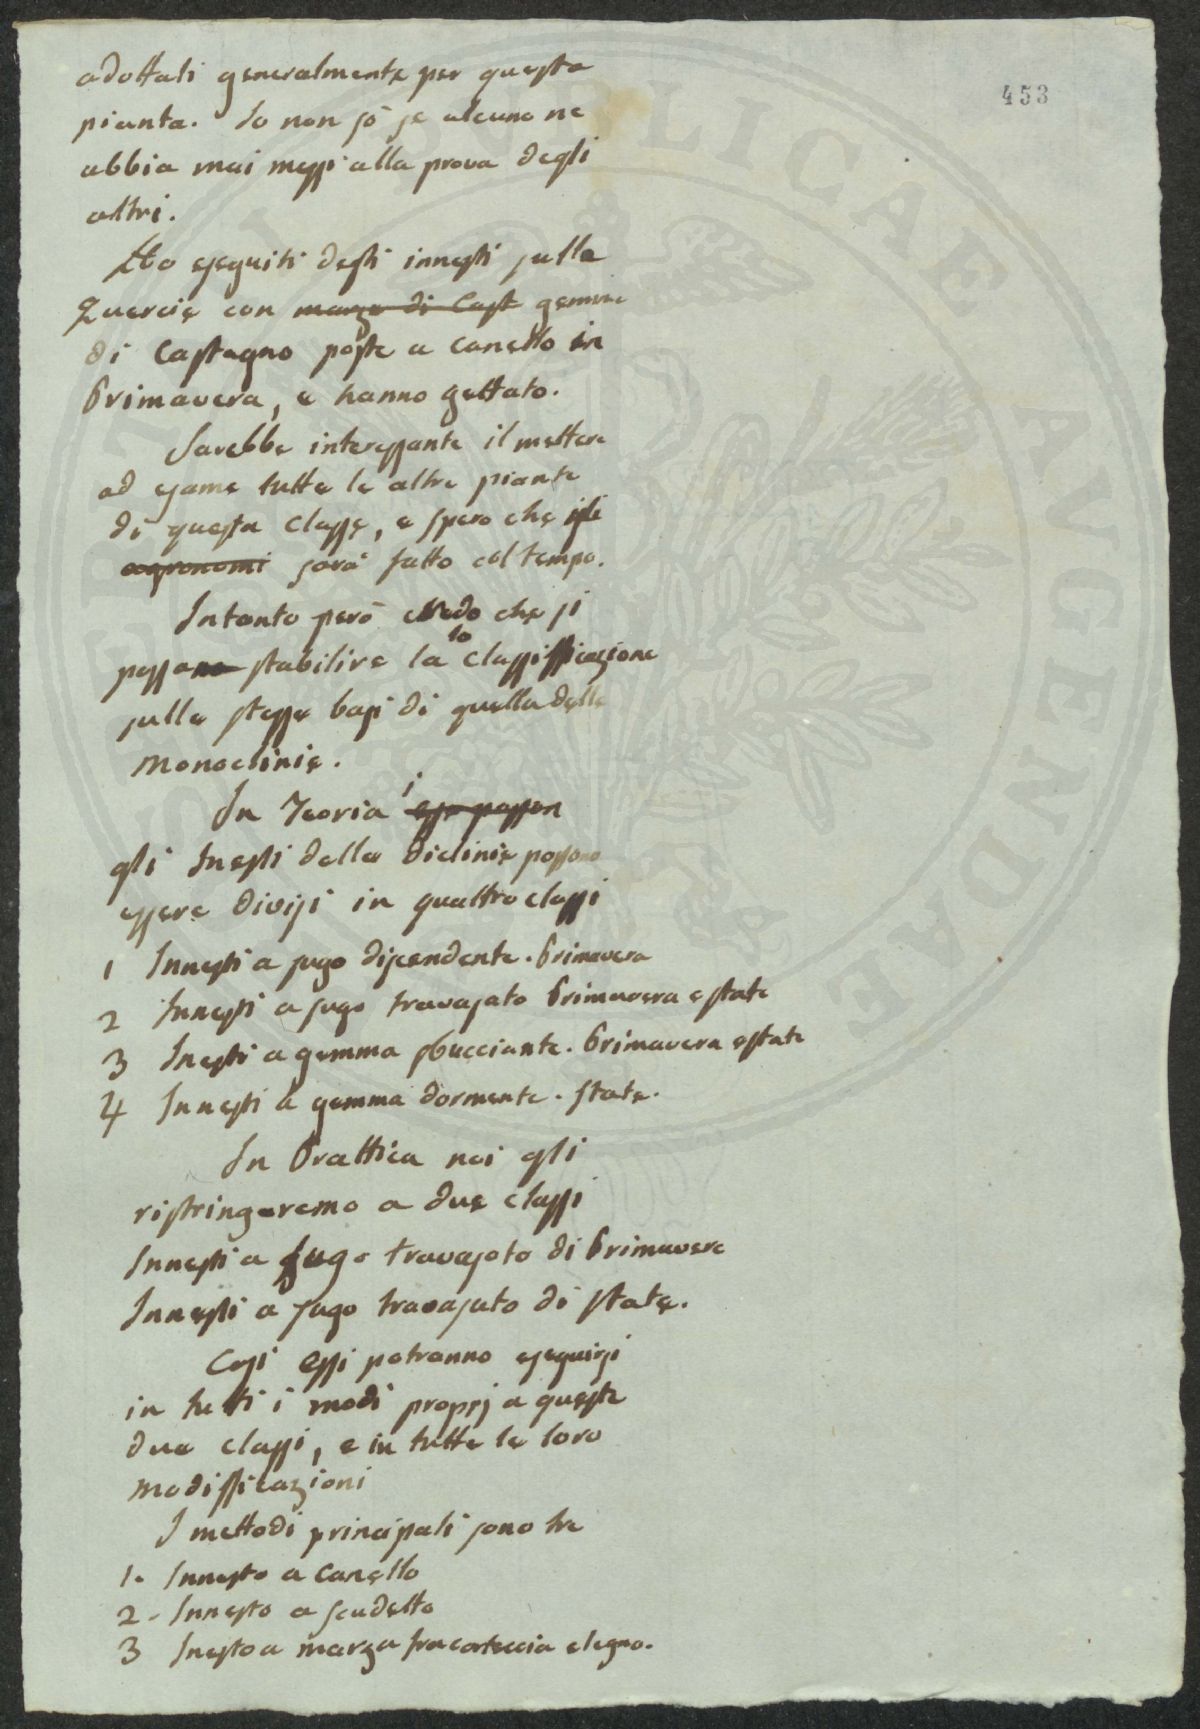 453
adottati generalmente per questa
pianta. Io non sò se alcuno ne
abbia mai messi alla prova degli
altri.
Ho eseguiti degli innesti sulle
Quercie con marze di Cast gemme
di Castagno poste a canello in
Primavera, e hanno gettato.
Sarebbe interessante il mettere
ad esame tutte le altre piante
di questa classe, e spero che
agronomi sarà fatto col tempo.
Intanto però credo che si
possano stabilire la classifficazione
sulle stesse basi di quella delle
Monoclinie.
In Teoria esse posson
gli Inesti delle diclinie possono
essere divisi in quattro classi
1 Innesti a sugo discendente. Primavera
2 Innesti a sugo travasato Primavera estate
3 Inesti a gemma sbucciante. Primavera estate
4 Innesti a gemma dormente. state.
In Prattica noi gli
ristringeremo a due classi
Innesti a sugo travasato di Primavera
Innesti a sugo travasato di state.
Cosi essi potranno eseguirsi
in tutti i modi proprj a queste
due classi, e in tutte le loro
modifficazioni
I mettodi principali sono tre
1. Innesto a canello
2. Innesto a scudetto
3 Inesto a marza fra corteccia e legno.